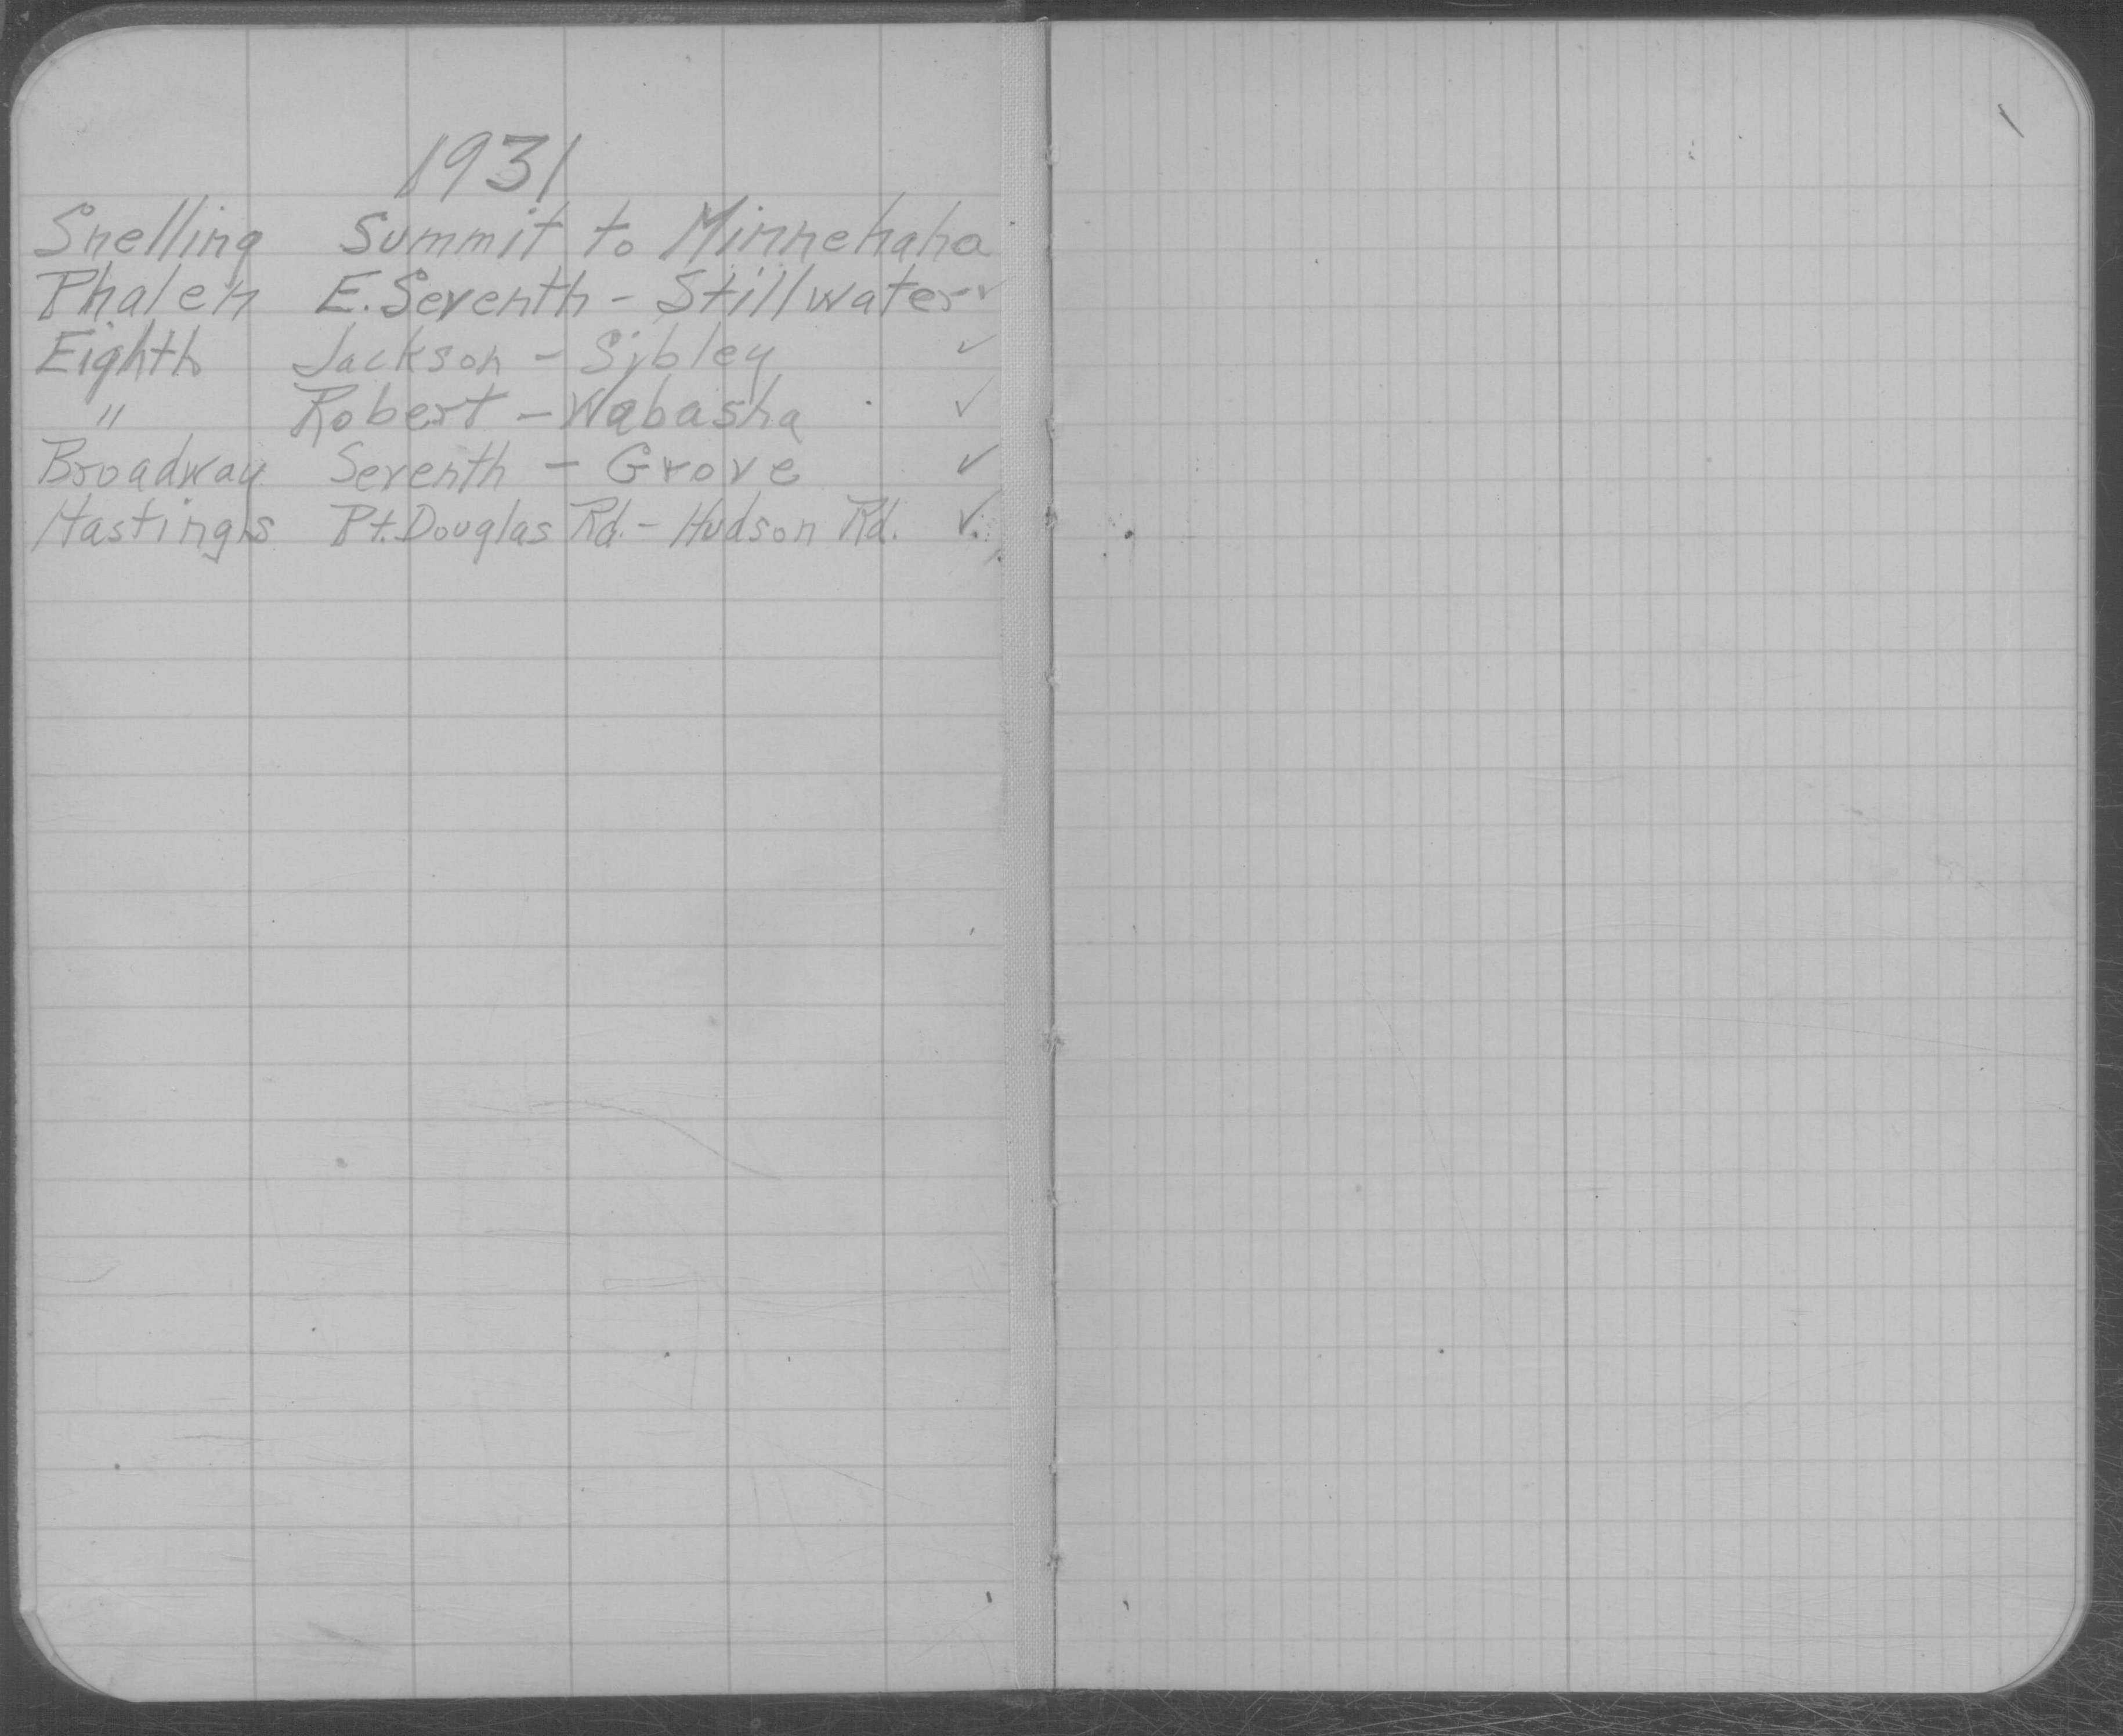 1931
Snelling Summit to Minnehaha
Phalen E. Seventh - Stillwater ✓
Eighth Jackson - Sibley ✓
" Robert - Wabasha ✓
Broadway Seventh - Grove ✓
Hastings Pt. Douglas Rd. - Hudson Rd. ✓